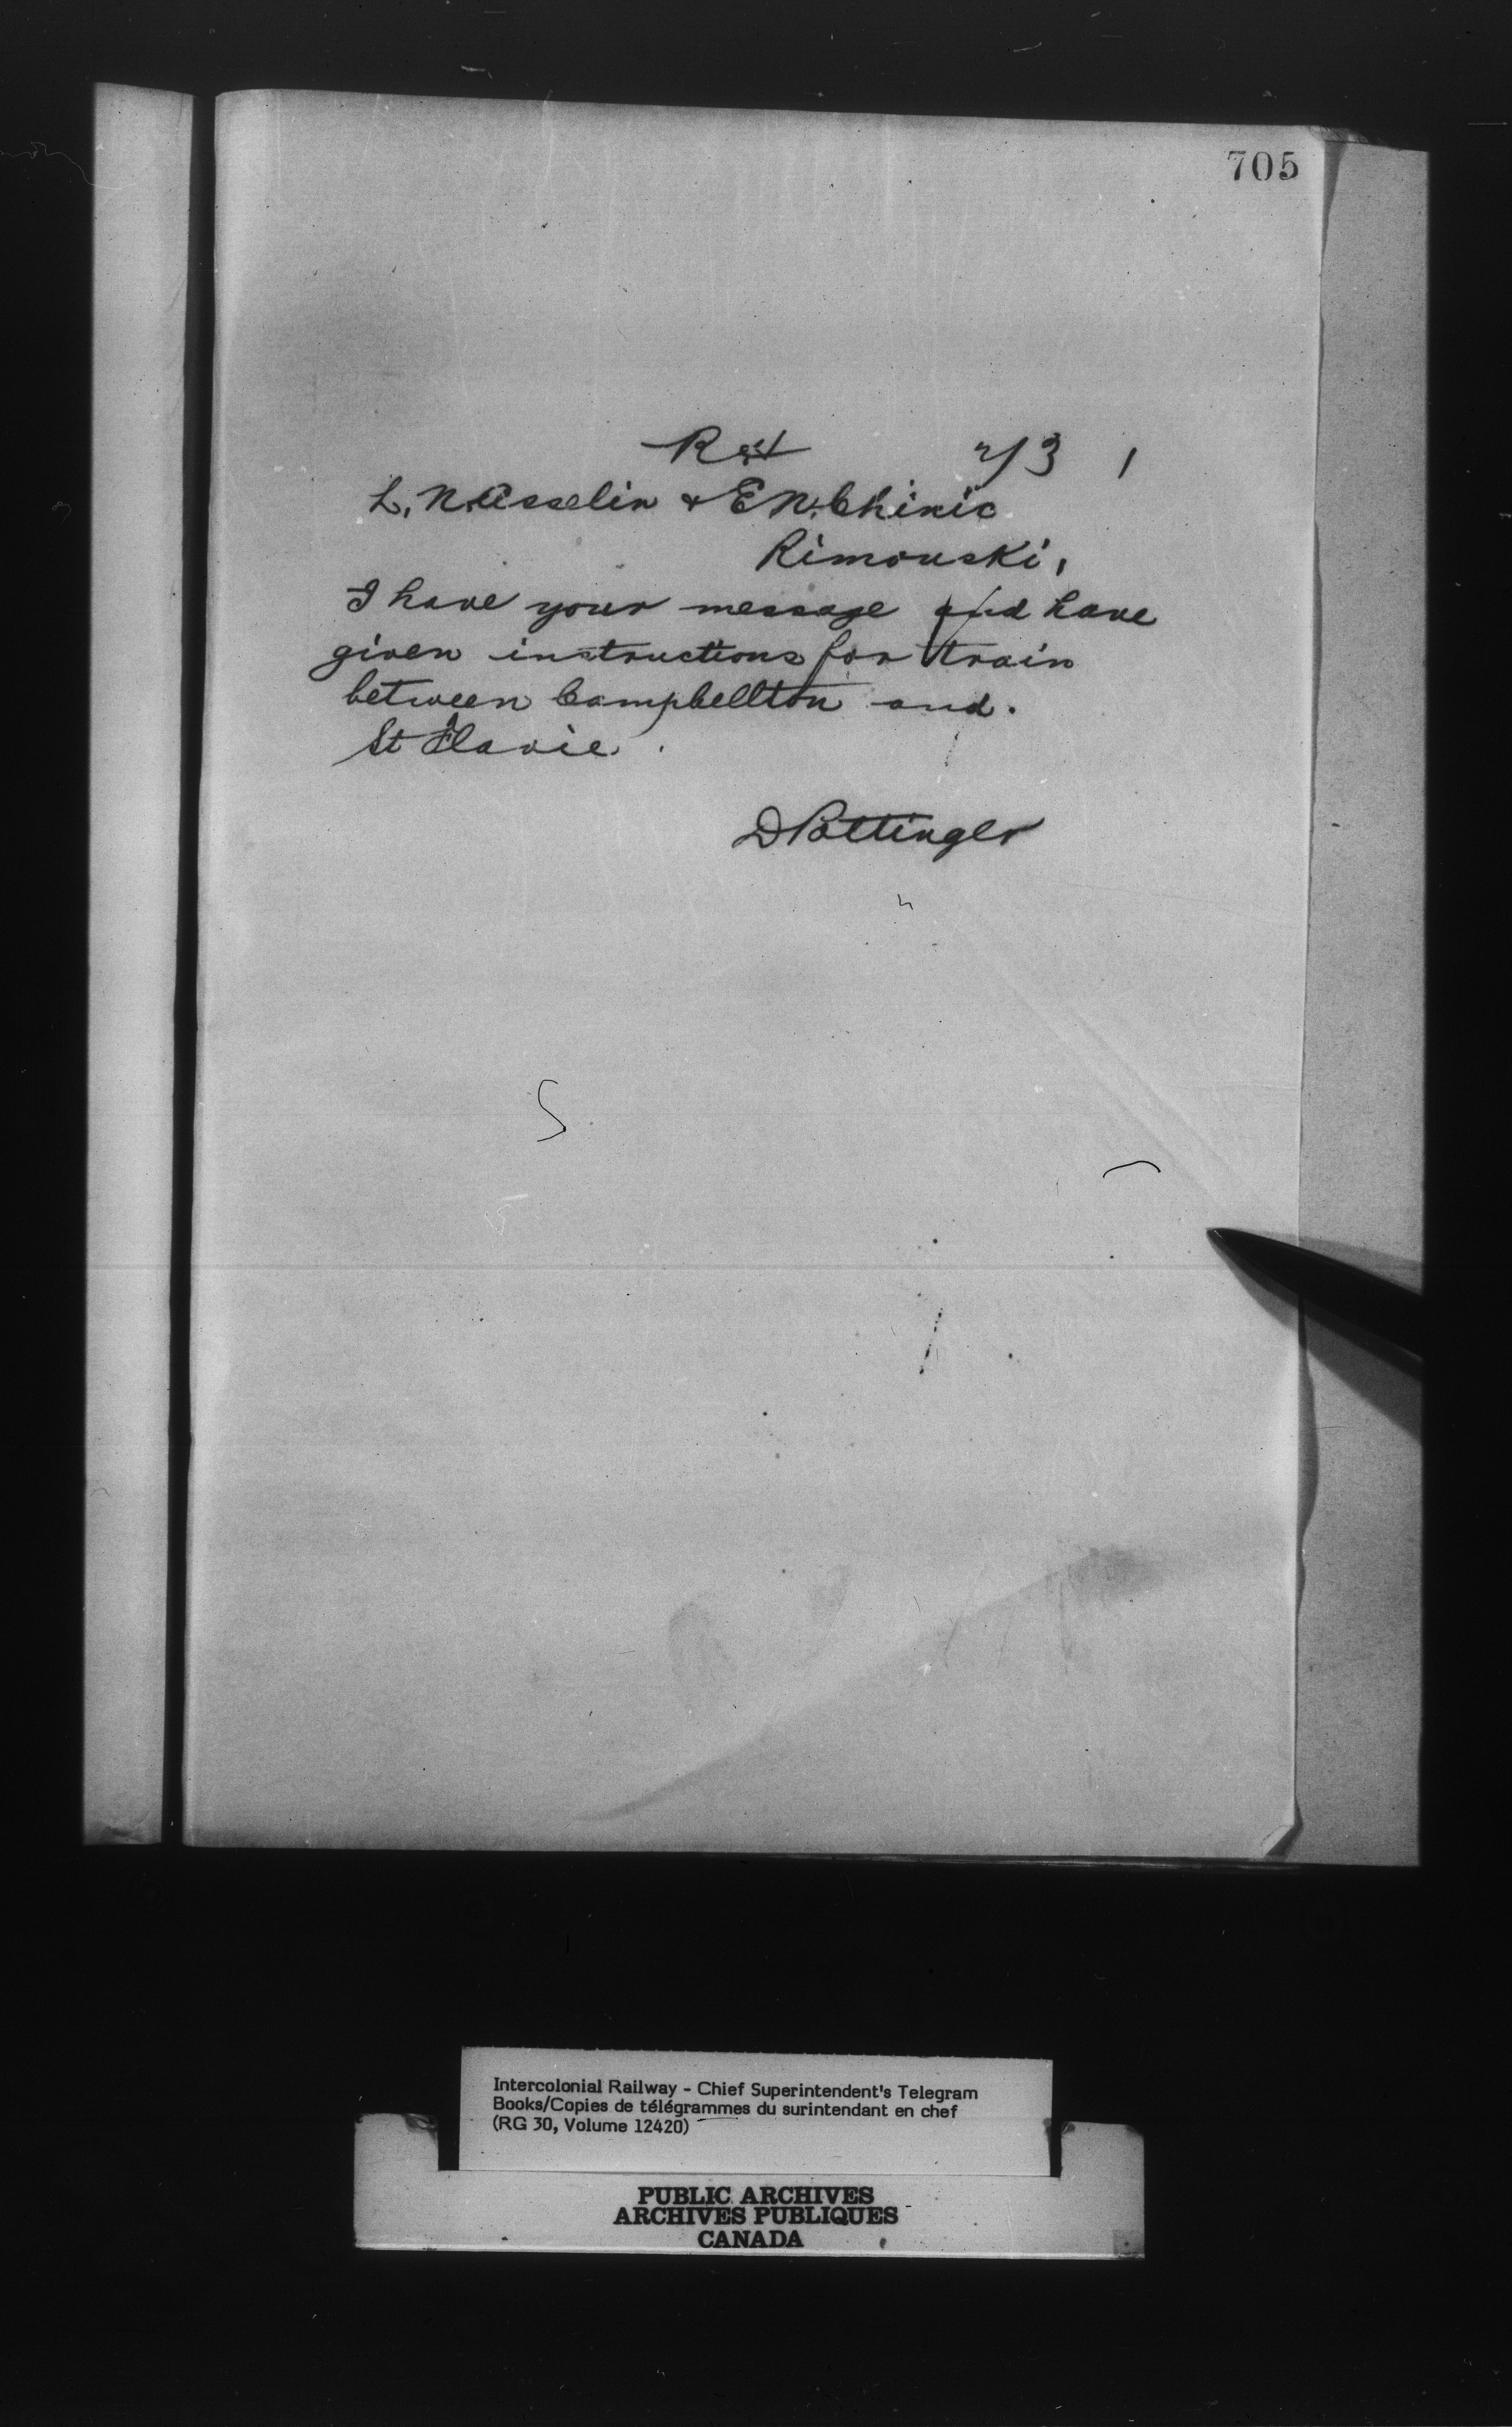 705
2/3
L. N. Asselin & E N. Chinic
Rimouski,
I have your message and have
given instructions for train
between Campbellton and.
St Flavie.
D Pottinger
Intercolonial Railway - Chief Superintendent's Telegram
Books/Copies de télégrammes du surintendant en chef
(RG 30, Volume 12420)
PUBLIC ARCHIVES
ARCHIVES PUBLIQUES
CANADA